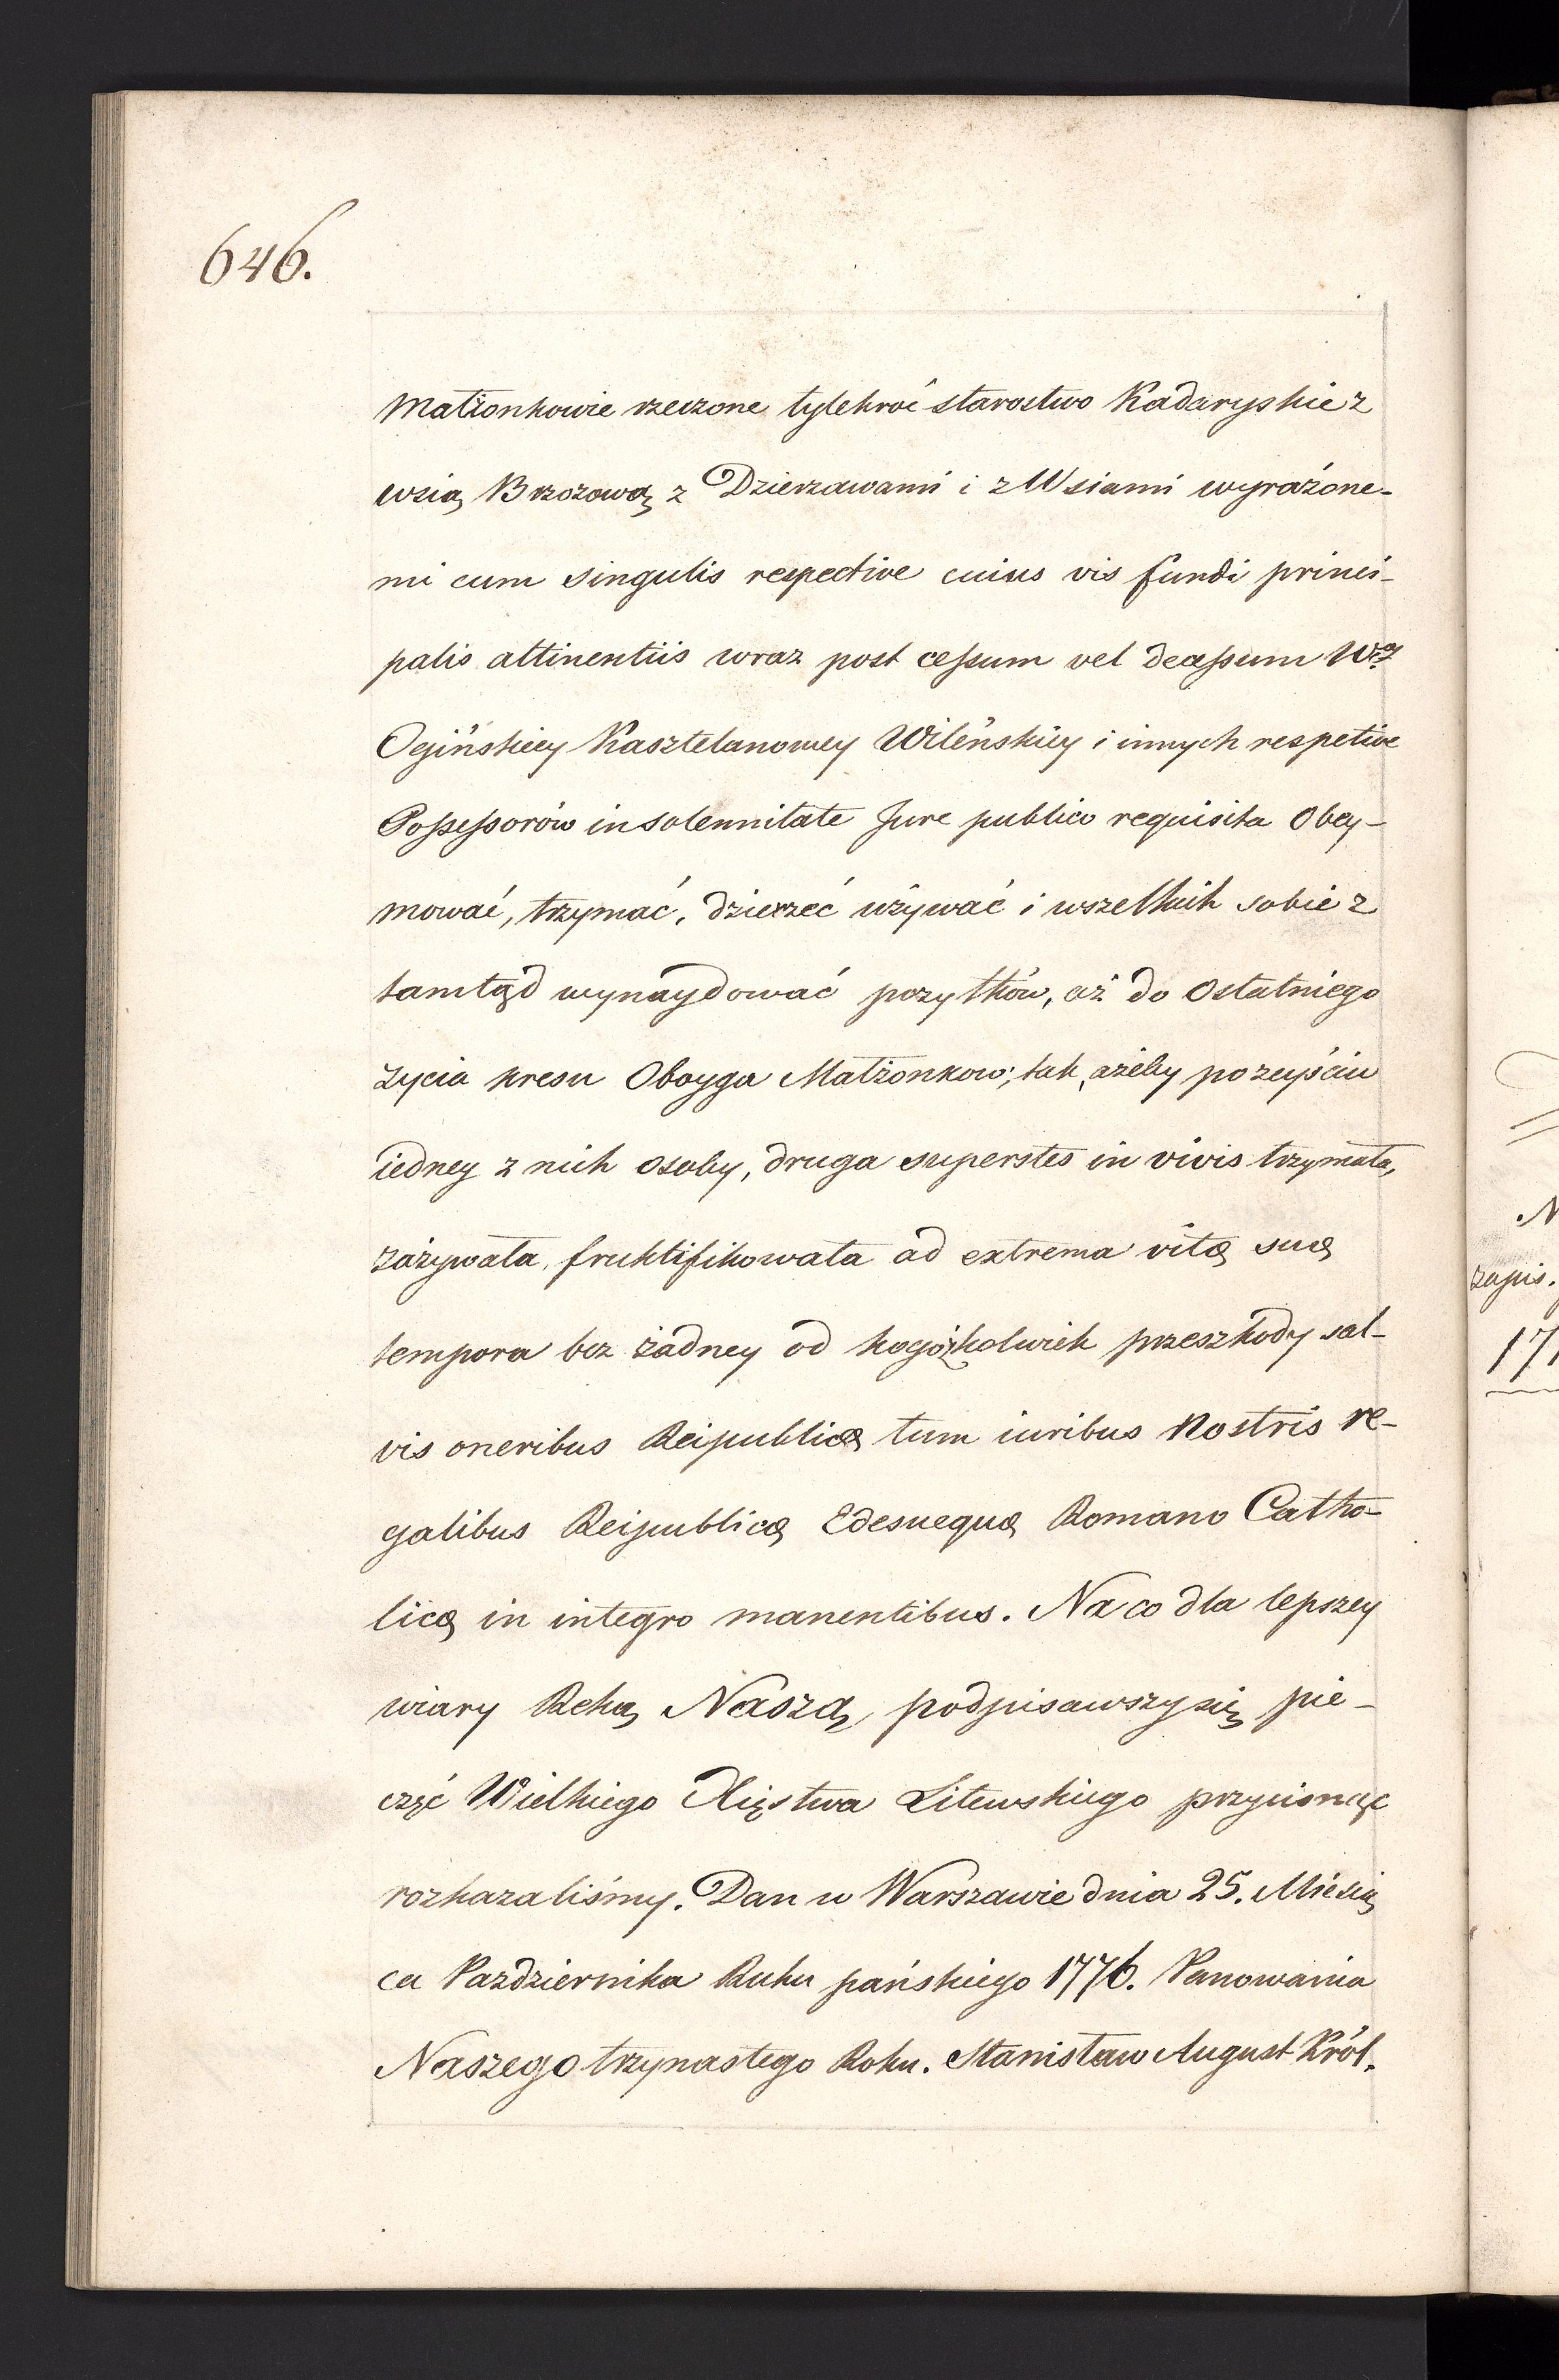 646.
Małżonkowie rzeczone tylekroć starostwo Kadaryskie z
wsią Brzozową z Dzierzawami i z Wsiami wyraźone-
mi cum singulis respective cuius vis fundi princi-
palis attinentiis wraz post cessum vel decessum Wey
Ogińskiey Kasztelanowey Wileńskiey i innych respetive
Possessorów in solennitate Jure publico requisita Obey-
mować, trzymać, dzierzeć używać i wszelkich sobie z
tamtąd wynaydować pozytków, aż do Ostatniego
zycia kresu Oboyga Małżonkow; tak, ażeby po zeyściu
iedney z nich osoby, druga superstes in vivis trzymała,
zażywała, fruktifikowała ad extrema vitę suę
tempora bez żadney od kogóżkolwiek przeszkody sal-
vis oneribus Reipublicę tum iuribus Nostris re-
galibus Reipublicę Edesuequę Romano Catho-
licę in integro manentibus. Na co dla lepszey
wiary Ręką Naszą, podpisawszy się, pie-
częć Wielkiego Xięstwa Litewskiego przycisnąć
rozkazaliśmy. Dan w Warszawie dnia 25. Miesią
ca Pazdziernika Roku pańskiego 1776. Panowania
Naszego trzynastego Roku. Stanisław August Król.
zapis.
171